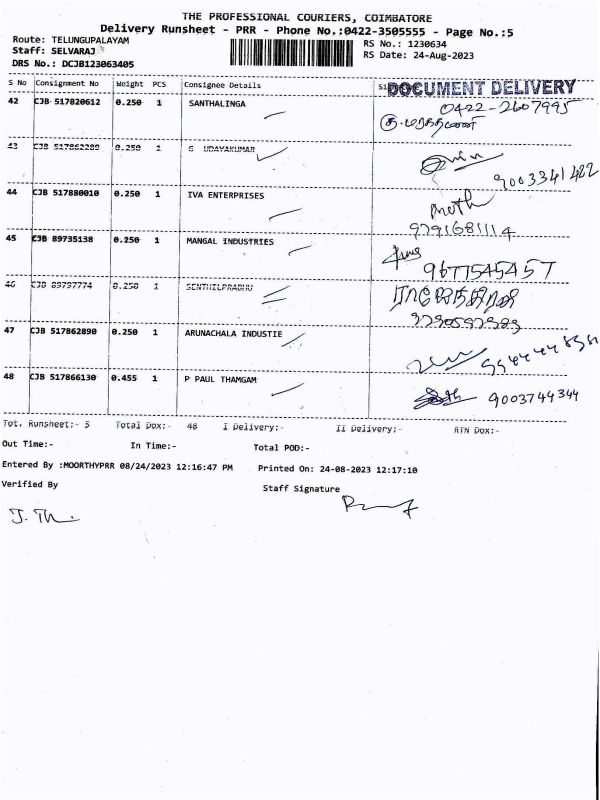 THE PROFESSIONAL COURIERS, COIMBATORE
Delivery Runsheet - PRR - Phone No.:0422-3505555 - Page No.:5
Route: TELUNGUPALAYAM
RS No.: 1230634
Staff: SELVARAJ
RS Date: 24-Aug-2023
DRS No.: DCJB123063405
S No Consignment No Weight PCS Consignee Details
DOCUMENT DELIVERY
42 CJB 517820612 0.250 1 SANTHALINGA 0422-2607995
43 CJB 517862289 0.250 1 G UDAYAKUMAR
9003341422
44 CJB 517880010 0.250 1 IVA ENTERPRISES
9791681114
45 CJB 89735138 0.250 1 MANGAL INDUSTRIES
9677545457
46 CJB 89797774 0.250 1 SENTHILPRABHU
47 CJB 517862890 0.250 1 ARUNACHALA INDUSTIE
48 CJB 517866130 0.455 1 P PAUL THAMGAM 9003744344
Tot. Runsheet:- 5 Total Dox:- 48 I Delivery:- II Delivery:- RTN Dox:-
Out Time:- In Time:- Total POD:-
Entered By :MOORTHYPRR 08/24/2023 12:16:47 PM Printed On: 24-08-2023 12:17:10
Verified By Staff Signature